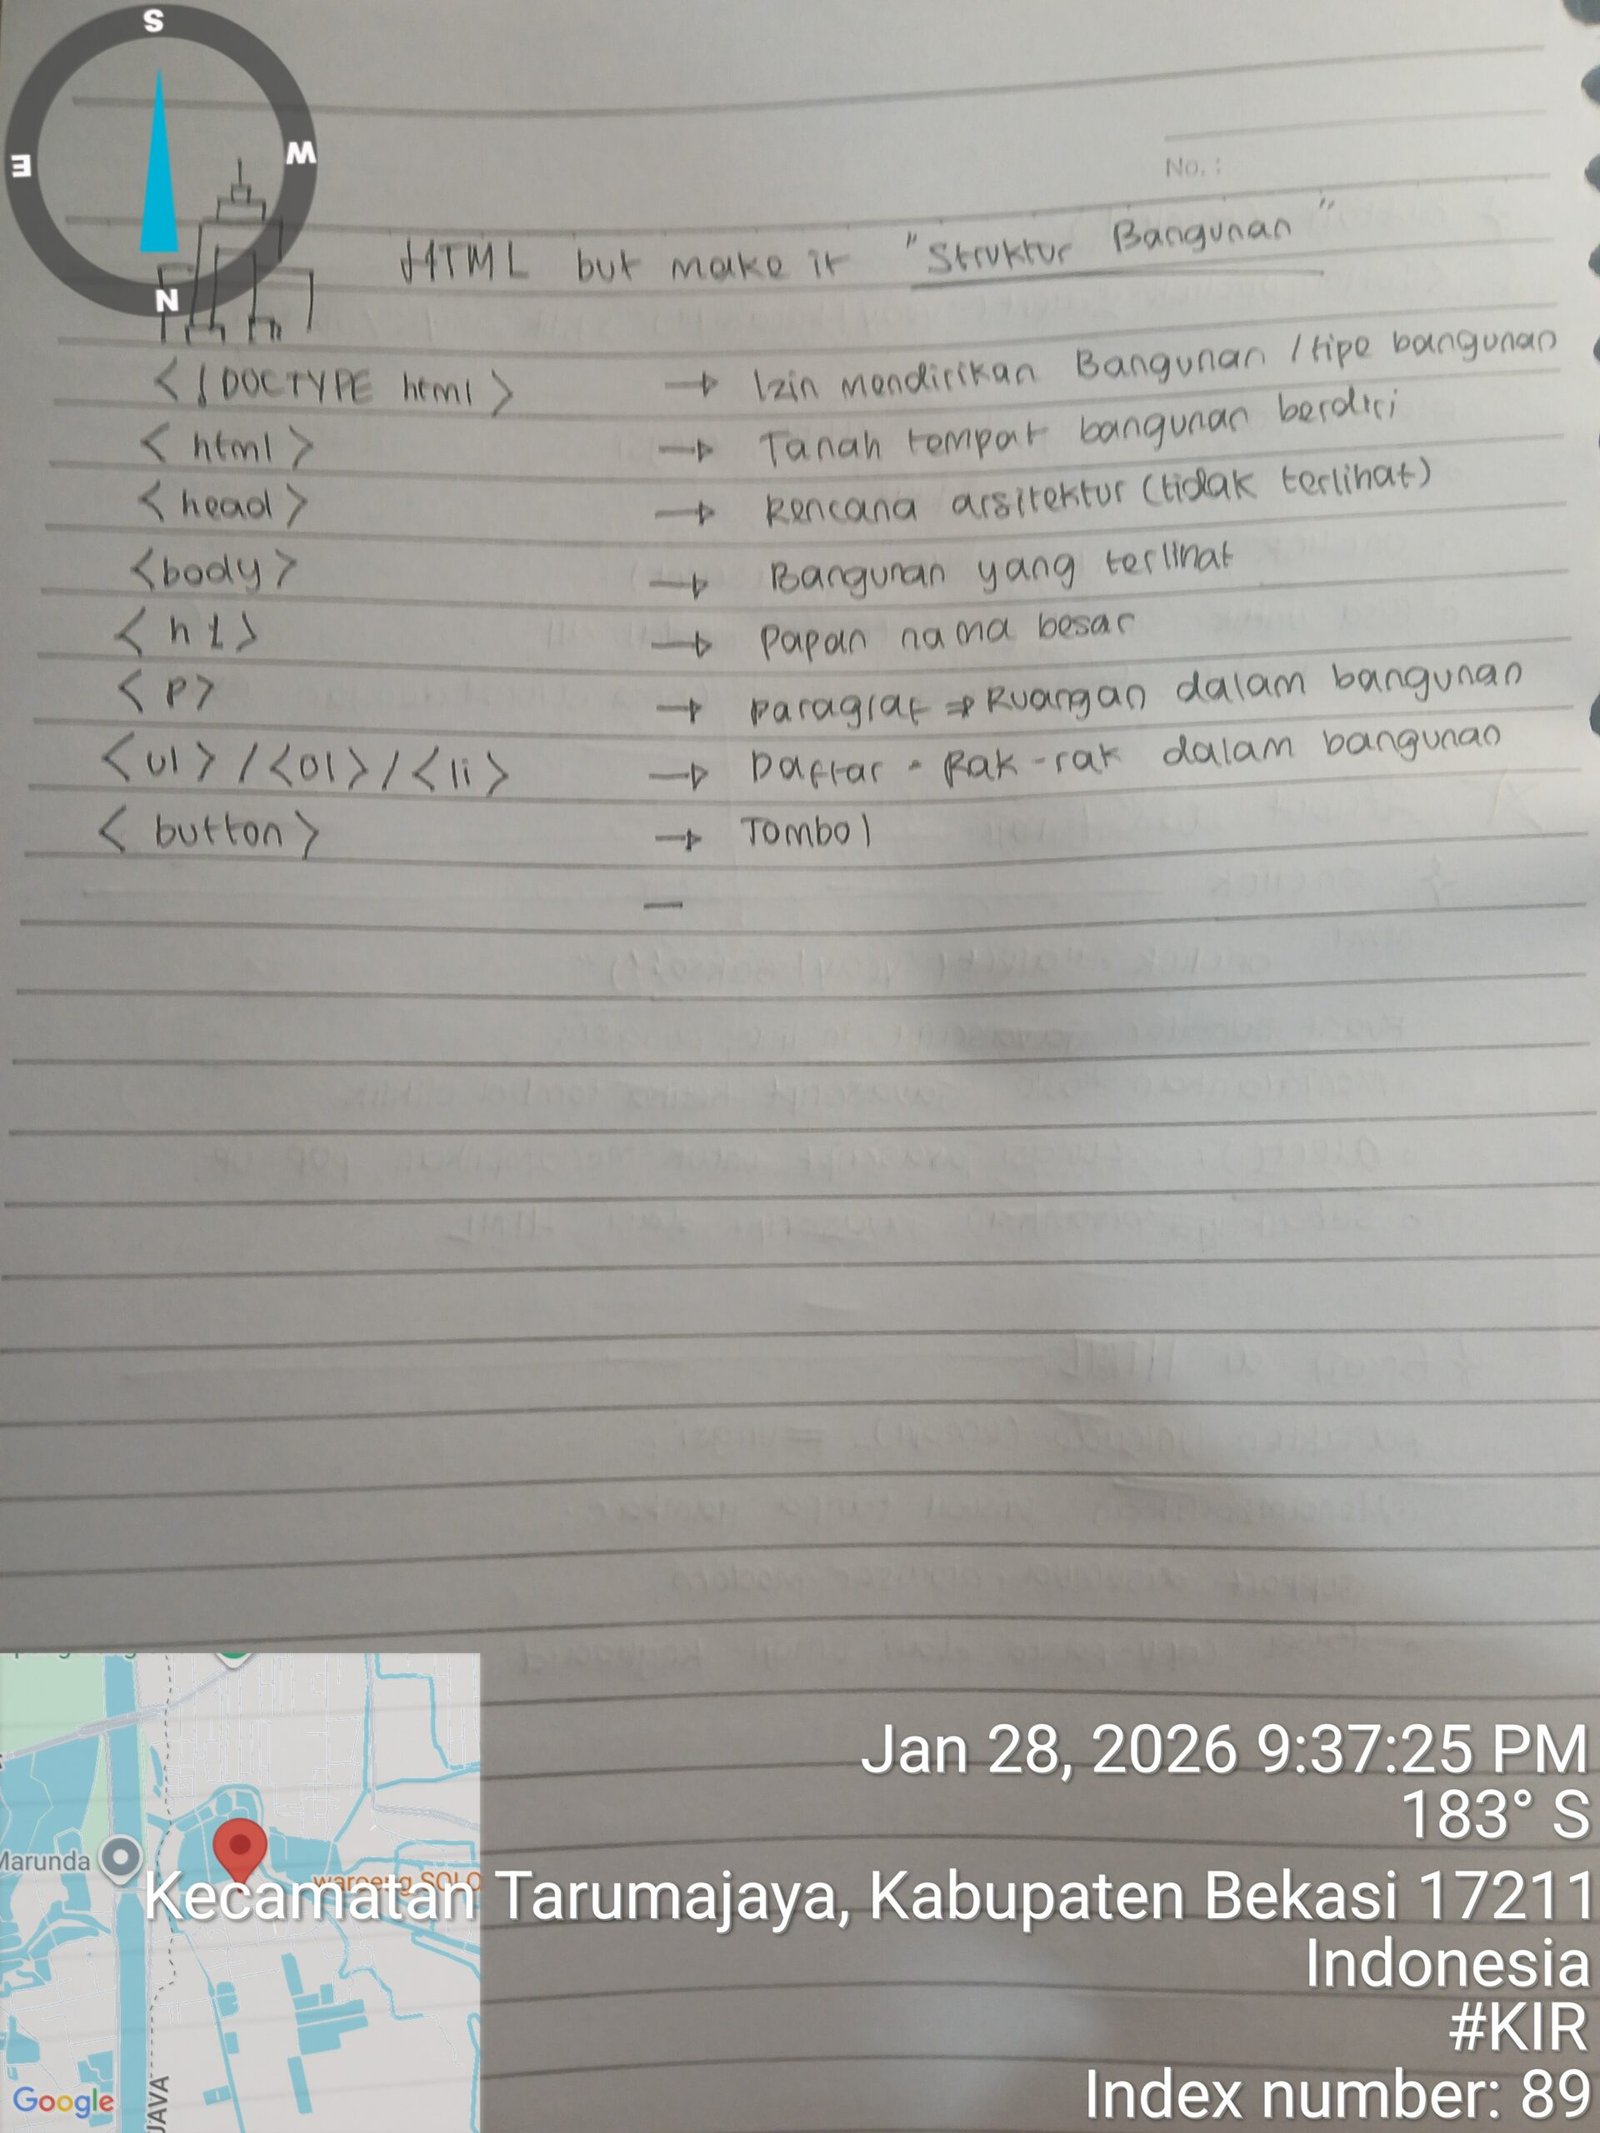 S
E
W
N
No. :
HTML but make it "Struktur Bangunan"
<!DOCTYPE html> → Izin mendirikan Bangunan / tipe bangunan
<html> → Tanah tempat bangunan berdiri
<head> → Rencana arsitektur (tidak terlihat)
<body> → Bangunan yang terlihat
<h1> → Papan nama besar
<p> → Paragraf ⇒ Ruangan dalam bangunan
<ul> / <ol> / <li> → Daftar - Rak-rak dalam bangunan
<button> → Tombol
Marunda
waroeng SOLO
JAVA
Google
Jan 28, 2026 9:37:25 PM
183° S
Kecamatan Tarumajaya, Kabupaten Bekasi 17211
Indonesia
#KIR
Index number: 89